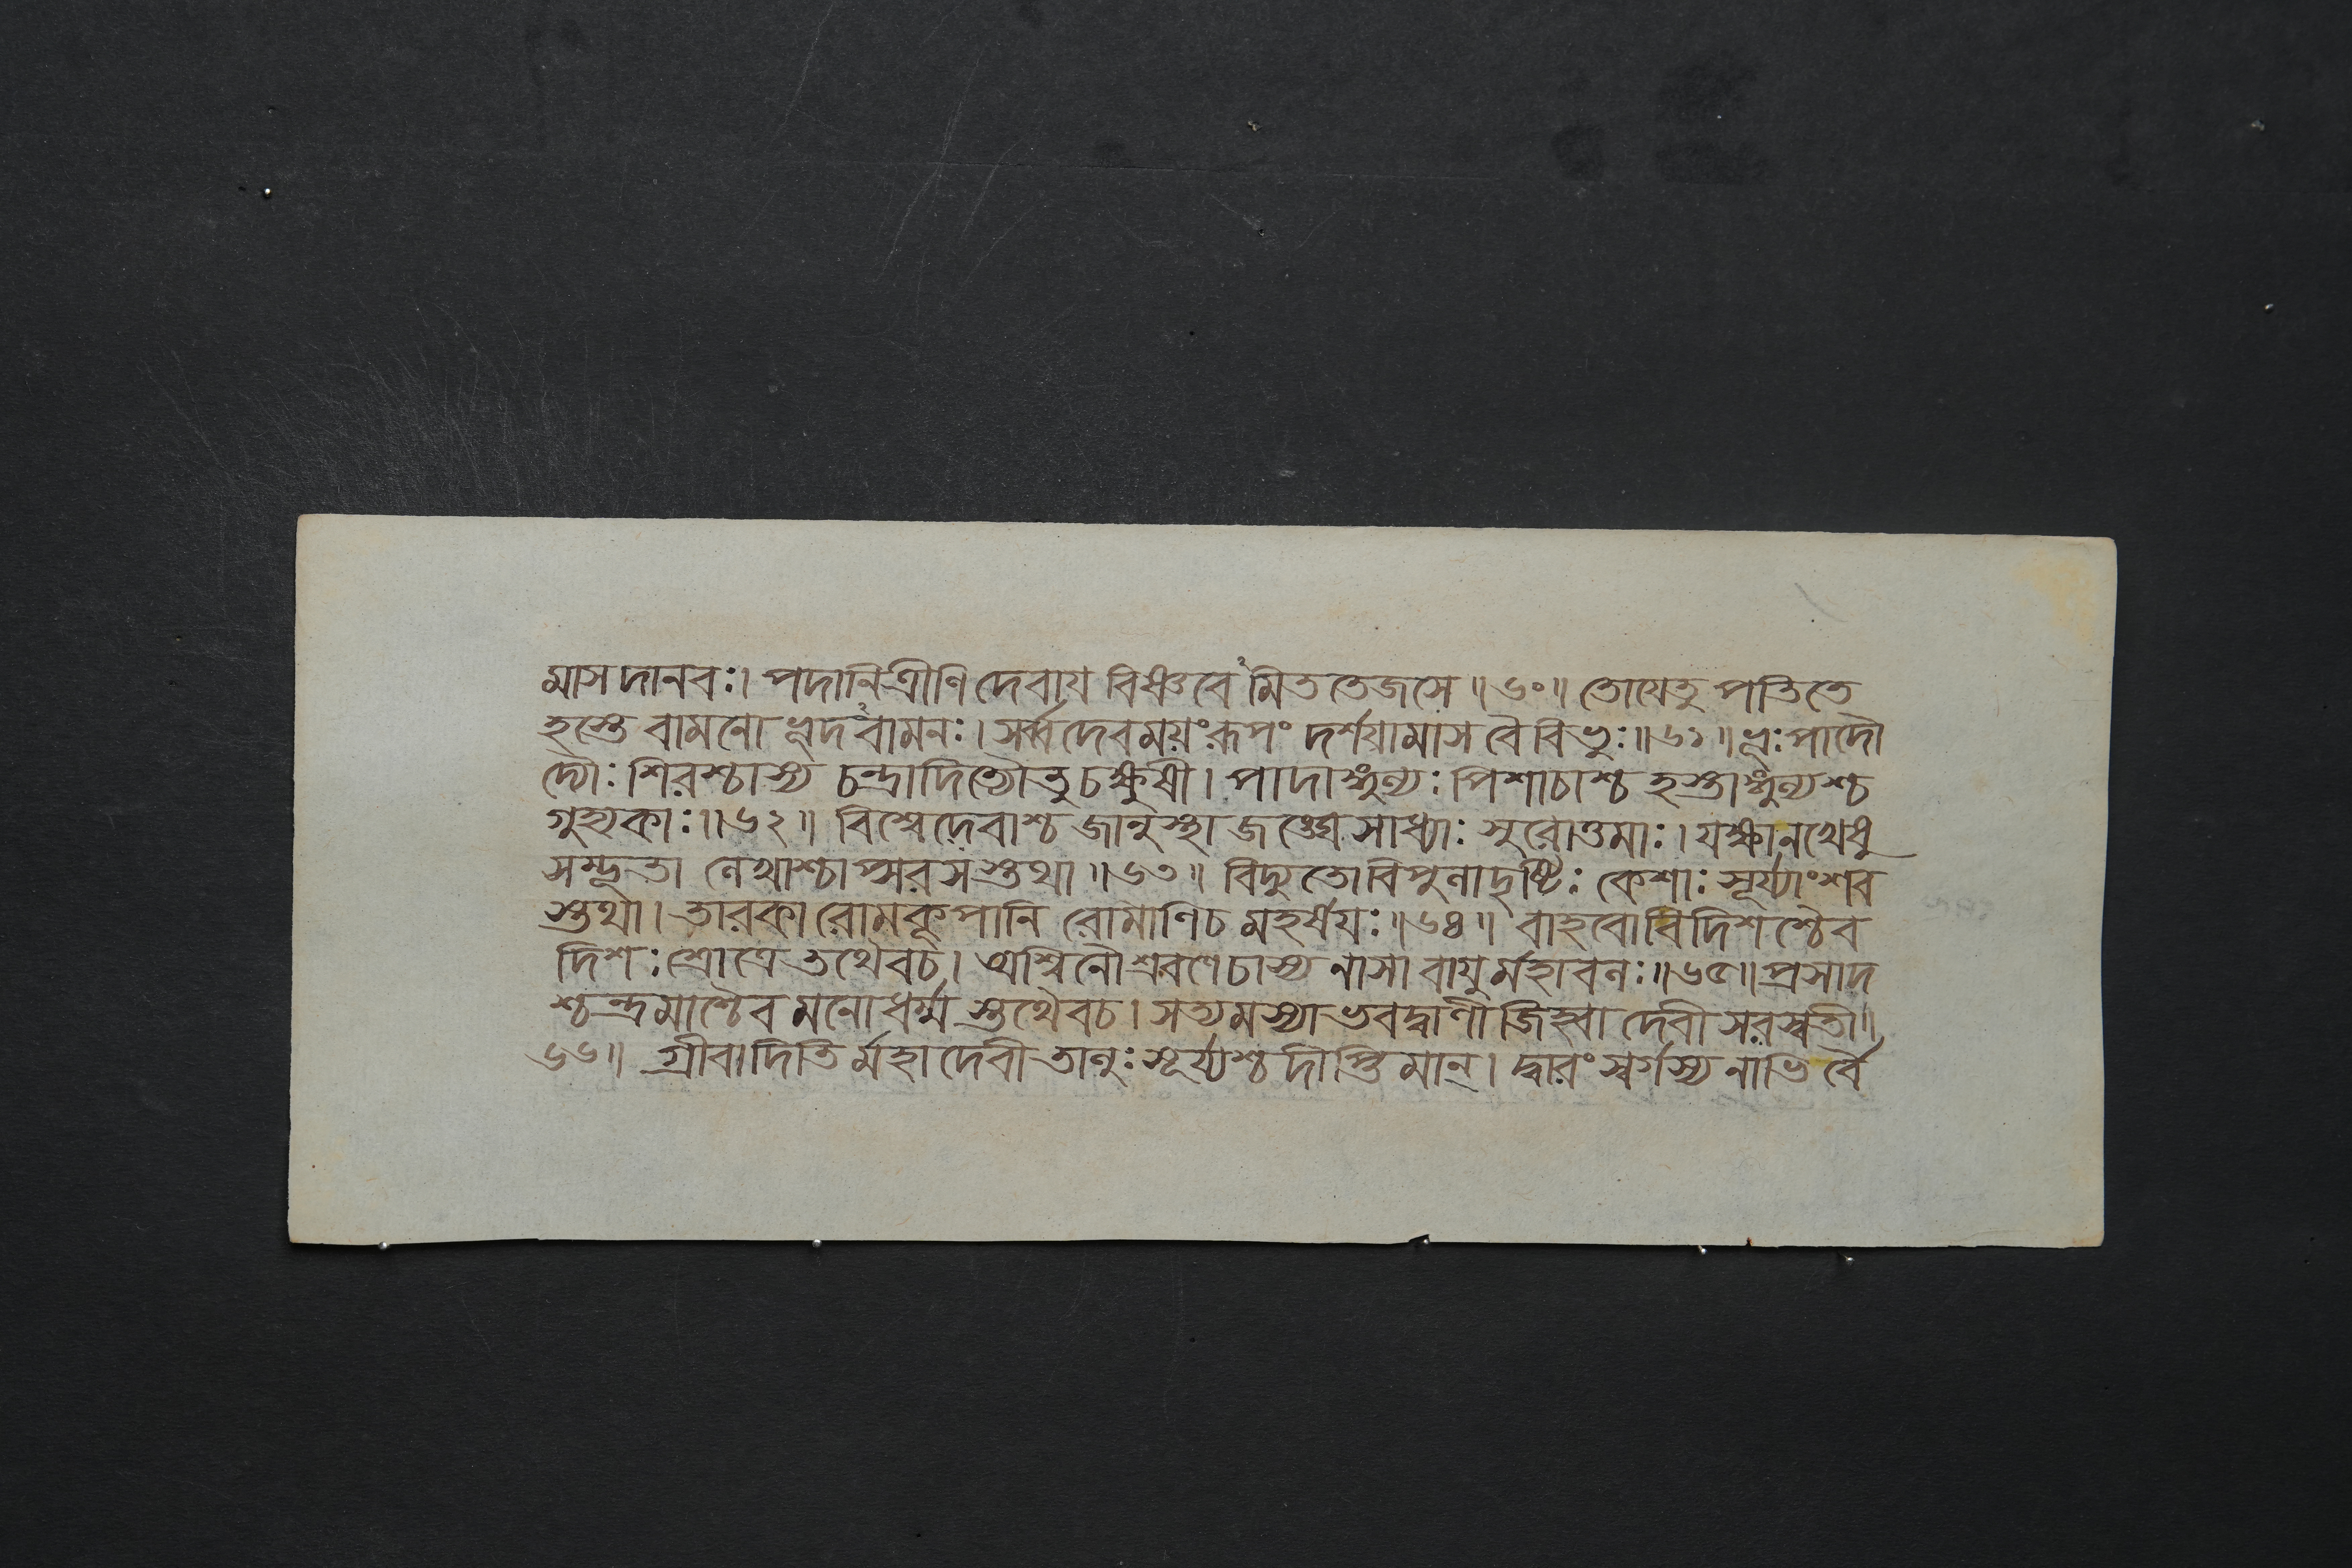 মাস দানবঃ। পদানি ত্রীণি দেবায বিষ্ণবেঽমিত তেজসে॥৬০॥ তোযেতু পতিতে
হস্তে বামনো ভূদঽবামনঃ। সর্ব্বদেবময়ংরূপং দর্শযামাস বৈ বিভুঃ॥৬১॥ ভূঃপাদৌ
দ্যৌঃ শিরশ্চাস্য চন্দ্রাদিত্যৌতু চক্ষুষী। পাদাঙ্গুল্যঃ পিশাচাশ্চ হস্তাঙ্গুল্যশ্চ
গুহ্যকাঃ॥৬২॥ বিশ্বেদেবাশ্চ জানুস্থা জঙ্ঘেসাধ্যাঃ সুরোত্তমাঃ। যক্ষানখেষু
সম্ভূতা লেখাশ্চাপ্সরসস্তথা॥৬৩॥ বিদ্যুতোবিপুলাদৃষ্টিঃ কেশাঃ সূর্য্যাংশব
স্তথা। তারকা রোমকূপানি রোমাণিচ মহর্ষযঃ॥৬৪॥ বাহবোবিদিশশ্চৈব
দিশঃ শ্রোত্রে তথৈবচ। অশ্বিনৌশ্রবণেচাস্য নাসা বাযুর্মহাবলঃ॥৬৫॥ প্রসাদ
শ্চন্দ্রমাশ্চৈব মনোধর্ম্ম স্তথৈবচ। সত্যমস্যাভবদ্বাণী জিহ্বা দেবী সরস্বতী॥
৬৬॥ গ্রীবাদিতি র্মহাদেবী তালুঃ সূর্য্যশ্চ দীপ্তিমান্। দ্বারং স্বর্গস্য নাভি র্বৈ